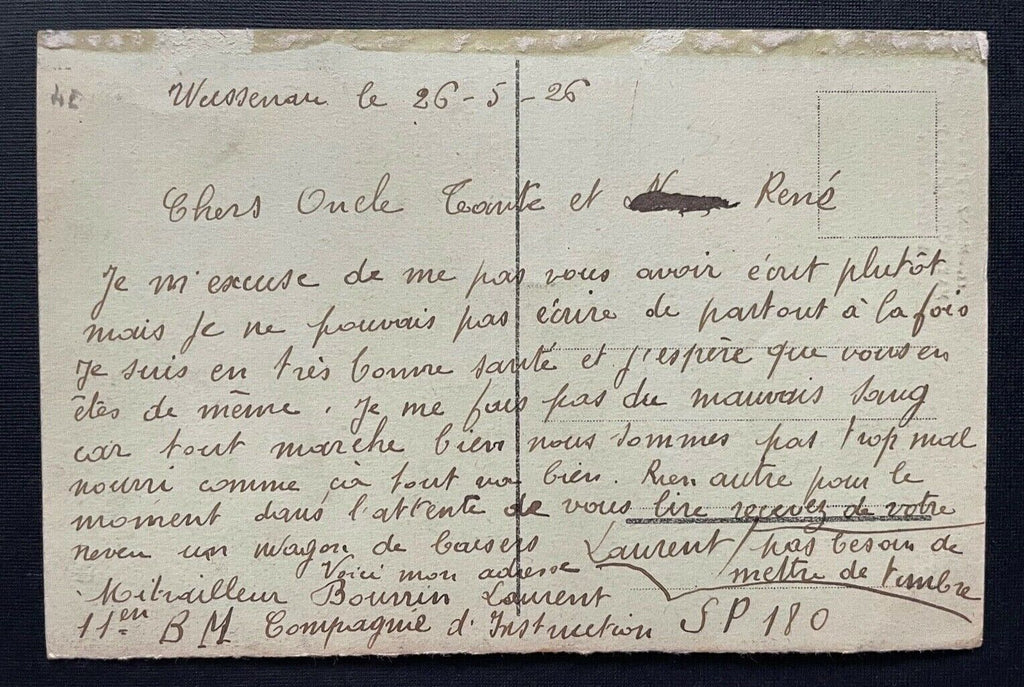 Weissenau le 26-5-26
Chers Oncle Tante et René
Je m'excuse de me pas vous avoir écrit plutôt
mais je ne pouvais pas écrire de partout à la fois
Je suis en très bonne santé et j'espère que vous en
êtes de même. Je me fais pas du mauvais sang
car tout marche bien nous sommes pas trop mal
nourri comme ça tout va bien. Rien autre pour le
moment dans l'attente de vous lire recevez de votre
neveu un wagon de baisers Laurent pas besoin de
mettre de timbre
Voici mon adresse
Mitrailleur Bourrin Laurent
11en B M Compagnie d'Instruction SP 180